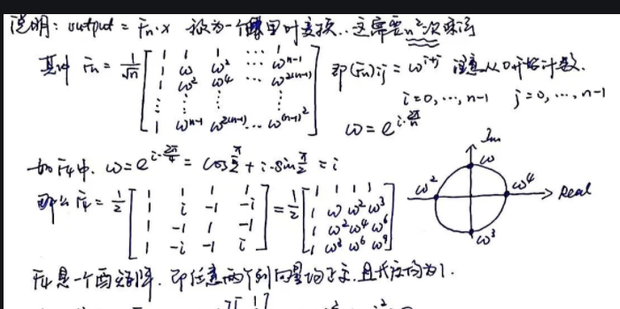 说明: output = Fn·x 称为一个傅里叶变换.. 这需要n²次乘法
其中 Fn = 1/√n [ 1 1 1 ⋯ 1
1 ω ω² ⋯ ω^(n-1)
1 ω² ω⁴ ⋯ ω^(2(n-1))
⋮ ⋮ ⋮ ⋮
1 ω^(n-1) ω^(2(n-1)) ⋯ ω^((n-1)²) ] 即(Fn)ij = ω^(i+j) 注意从0开始计数.
i=0, ⋯, n-1 j=0, ⋯, n-1
ω = e^(i·2π/n)
如F4中. ω = e^(i·2π/4) = cos π/2 + i·sin π/2 = i
那么 F4 = 1/2 [ 1 1 1 1
1 i -1 -i
1 -1 1 -1
1 -i -1 i ] = 1/2 [ 1 1 1 1
1 ω ω² ω³
1 ω² ω⁴ ω⁶
1 ω³ ω⁶ ω⁹ ]
Im
ω
ω² ω⁴ Real
ω³
F4是一个酉矩阵. 即任意两个列向量均正交, 且长度均为1.